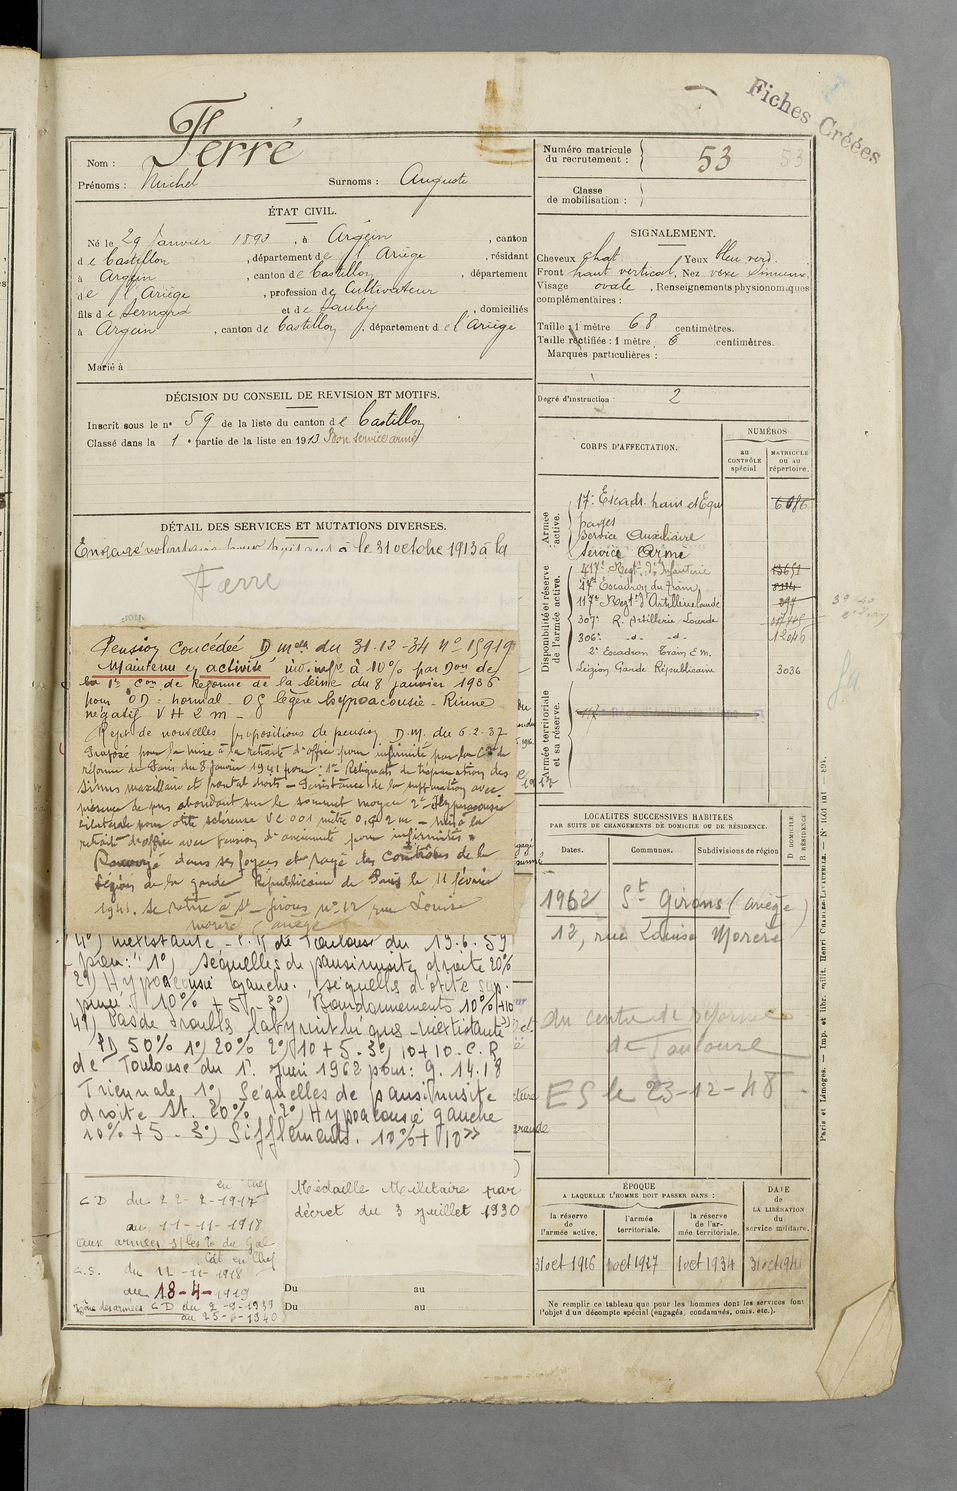 Fiches Créées
Nom : Ferré
Prénoms : Michel Surnoms : Auguste
ÉTAT CIVIL.
Né le 29 Janvier 1893, à Argein, canton
de Castillon, département de l'Ariège, résidant
à Argein, canton de Castillon, département
de l'Ariège, profession de Cultivateur
fils de Bernard et de, domiciliés
à Argein, canton de Castillon, département de l'Ariège
Marié à
DÉCISION DU CONSEIL DE REVISION ET MOTIFS.
Inscrit sous le n° 59 de la liste du canton de Castillon
Classé dans la 1e partie de la liste en 1913 Bon service armé
DÉTAIL DES SERVICES ET MUTATIONS DIVERSES.
Engagé volontaire pour huit ans à le 31 octobre 1913 à la
Ferré
Pension Concédée D du 31-12-34 n° 15919
Maintenu en activité inv. inf. à 10% par Don de
la 1re Con de Réforme de la Seine du 8 janvier 1936
pour OD : normal - OG légère hypoacousie - Rinne
négatif VH 2 m -
Rejet de nouvelles propositions de pension D.M. du 6-2-37
Proposé pour la mise à la retraite d'office pour infirmité par la Con de
réforme de Paris du 8 janvier 1941 pour : 1° Reliquats de trépanation des
sinus maxillaire et frontal droits - Persistance de la suppuration avec
présence de pus abondant sur le sommet moyen 2° Hypoacousie
bilatérale pour otite scléreuse VC 001 mètre 0,4 2 m - mis à la
retraite d'office avec pension d'ancienneté pour infirmités.
Renvoyé dans ses foyers et rayé des contrôles de la
Légion de la garde Républicaine de Paris le 11 février
1941. Se retire à St-Girons n° 12 rue Louise
Morère (Ariège)
4°) inexistante - C.R de Toulouse du 19.6.59
pour : "1°) Séquelles de pansinusite droite 20%
2°) Hypoacousie gauche. Séquelles d'otite sup-
purée. 10% + 5 - 3°) Bourdonnements 10% + 10
4°) Pas de troubles labyrinthiques - inexistante"
PD 50% 1°) 20% 2°) 10 + 5 - 3°) 10 + 10 - C.R
de Toulouse du 1er Juin 1962 pour : 9.14.18
Triennale 1°) Séquelles de pansinusite
droite St. 20% 2°) Hypoacousie gauche
10% + 5 - 3°) Sifflements. 10% + 10 "
en Chef
CD du 22-2-1917
au 11-11-1918
aux armées s/les o. du Gal
Cdt en Chef
C.S. du 12-11-1918
au 18-4-1919
Zône des armées CD du 2-9-1939
au 25-6-1940
Médaille Militaire par
décret du 3 juillet 1930
Du au
Du au
Numéro matricule du recrutement : 53
Classe de mobilisation :
SIGNALEMENT.
Cheveux chat Yeux bleu verd.
Front haut vertical, Nez vexe sinueux
Visage ovale, Renseignements physionomiques
complémentaires :
Taille : 1 mètre 68 centimètres.
Taille rectifiée : 1 mètre 6 centimètres.
Marques particulières :
Degré d'instruction : 2
CORPS D'AFFECTATION.
NUMÉROS
au CONTRÔLE spécial
MATRICULE OU AU répertoire.
Armée active.
17e Escadr. train et Equi
pages
Service Auxiliaire
Service Armé
Disponibilité et réserve de l'armée active.
417e Regt d'Infanterie
17e Escadron du Train
117e Regt d'Artillerie lourde
307e R. Artillerie Lourde
306e -d- -d- 12046
2e Escadron Train E.M.
Légion Garde Républicaine 3036
Armée territoriale et sa réserve.
LOCALITÉS SUCCESSIVES HABITÉES
PAR SUITE DE CHANGEMENTS DE DOMICILE OU DE RÉSIDENCE.
Dates. Communes. Subdivisions de région D DOMICILE R RÉSIDENCE
1962 St Girons (Ariège)
12, rue Louise Morère
du centre de réforme
de Toulouse
ES le 23-12-48
ÉPOQUE
A LAQUELLE L'HOMME DOIT PASSER DANS :
la réserve de l'armée active.
l'armée territoriale.
la réserve de l'armée territoriale.
DATE de LA LIBÉRATION du service militaire.
31 oct 1916 1 oct 1927 1 oct 1934 31 oct 1941
Ne remplir ce tableau que pour les hommes dont les services font
l'objet d'un décompte spécial (engagés, condamnés, omis, etc.).
Paris et Limoges. — Imp. et libr. milit. Henri CHARLES-LAVAUZELLE.